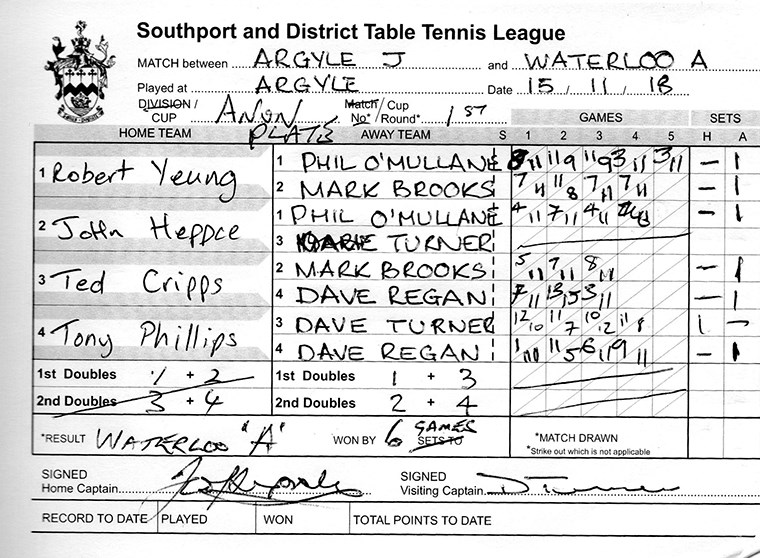 Southport and District Table Tennis League
MATCH between ARGYLE J and WATERLOO A
Played at ARGYLE Date 15, 11, 18
DIVISION / CUP ANON PLATE Match No* / Cup Round* 1ST GAMES SETS
HOME TEAM AWAY TEAM S 1 2 3 4 5 H A
1 Robert Yeung 1 PHIL O'MULLANE 8 11 11 9 11 9 3 11 3 11 – 1
2 MARK BROOKS 7 11 11 8 7 11 7 11 – 1
2 John Heppce 1 PHIL O'MULLANE 4 11 7 11 4 11 – 1
3 TURNER
3 Ted Cripps 2 MARK BROOKS 5 11 7 11 8 11 – 1
4 DAVE REGAN 7 11 13 15 3 11 – 1
4 Tony Phillips 3 DAVE TURNER 12 10 11 7 10 12 11 8 1 –
4 DAVE REGAN 1 11 11 5 6 11 9 11 – 1
1st Doubles 1 + 2 1st Doubles 1 + 3
2nd Doubles 3 + 4 2nd Doubles 2 + 4
*RESULT WATERLOO "A" WON BY 6 GAMES SETS TO *MATCH DRAWN
*Strike out which is not applicable
SIGNED SIGNED
Home Captain Visiting Captain D Turner
RECORD TO DATE PLAYED WON TOTAL POINTS TO DATE